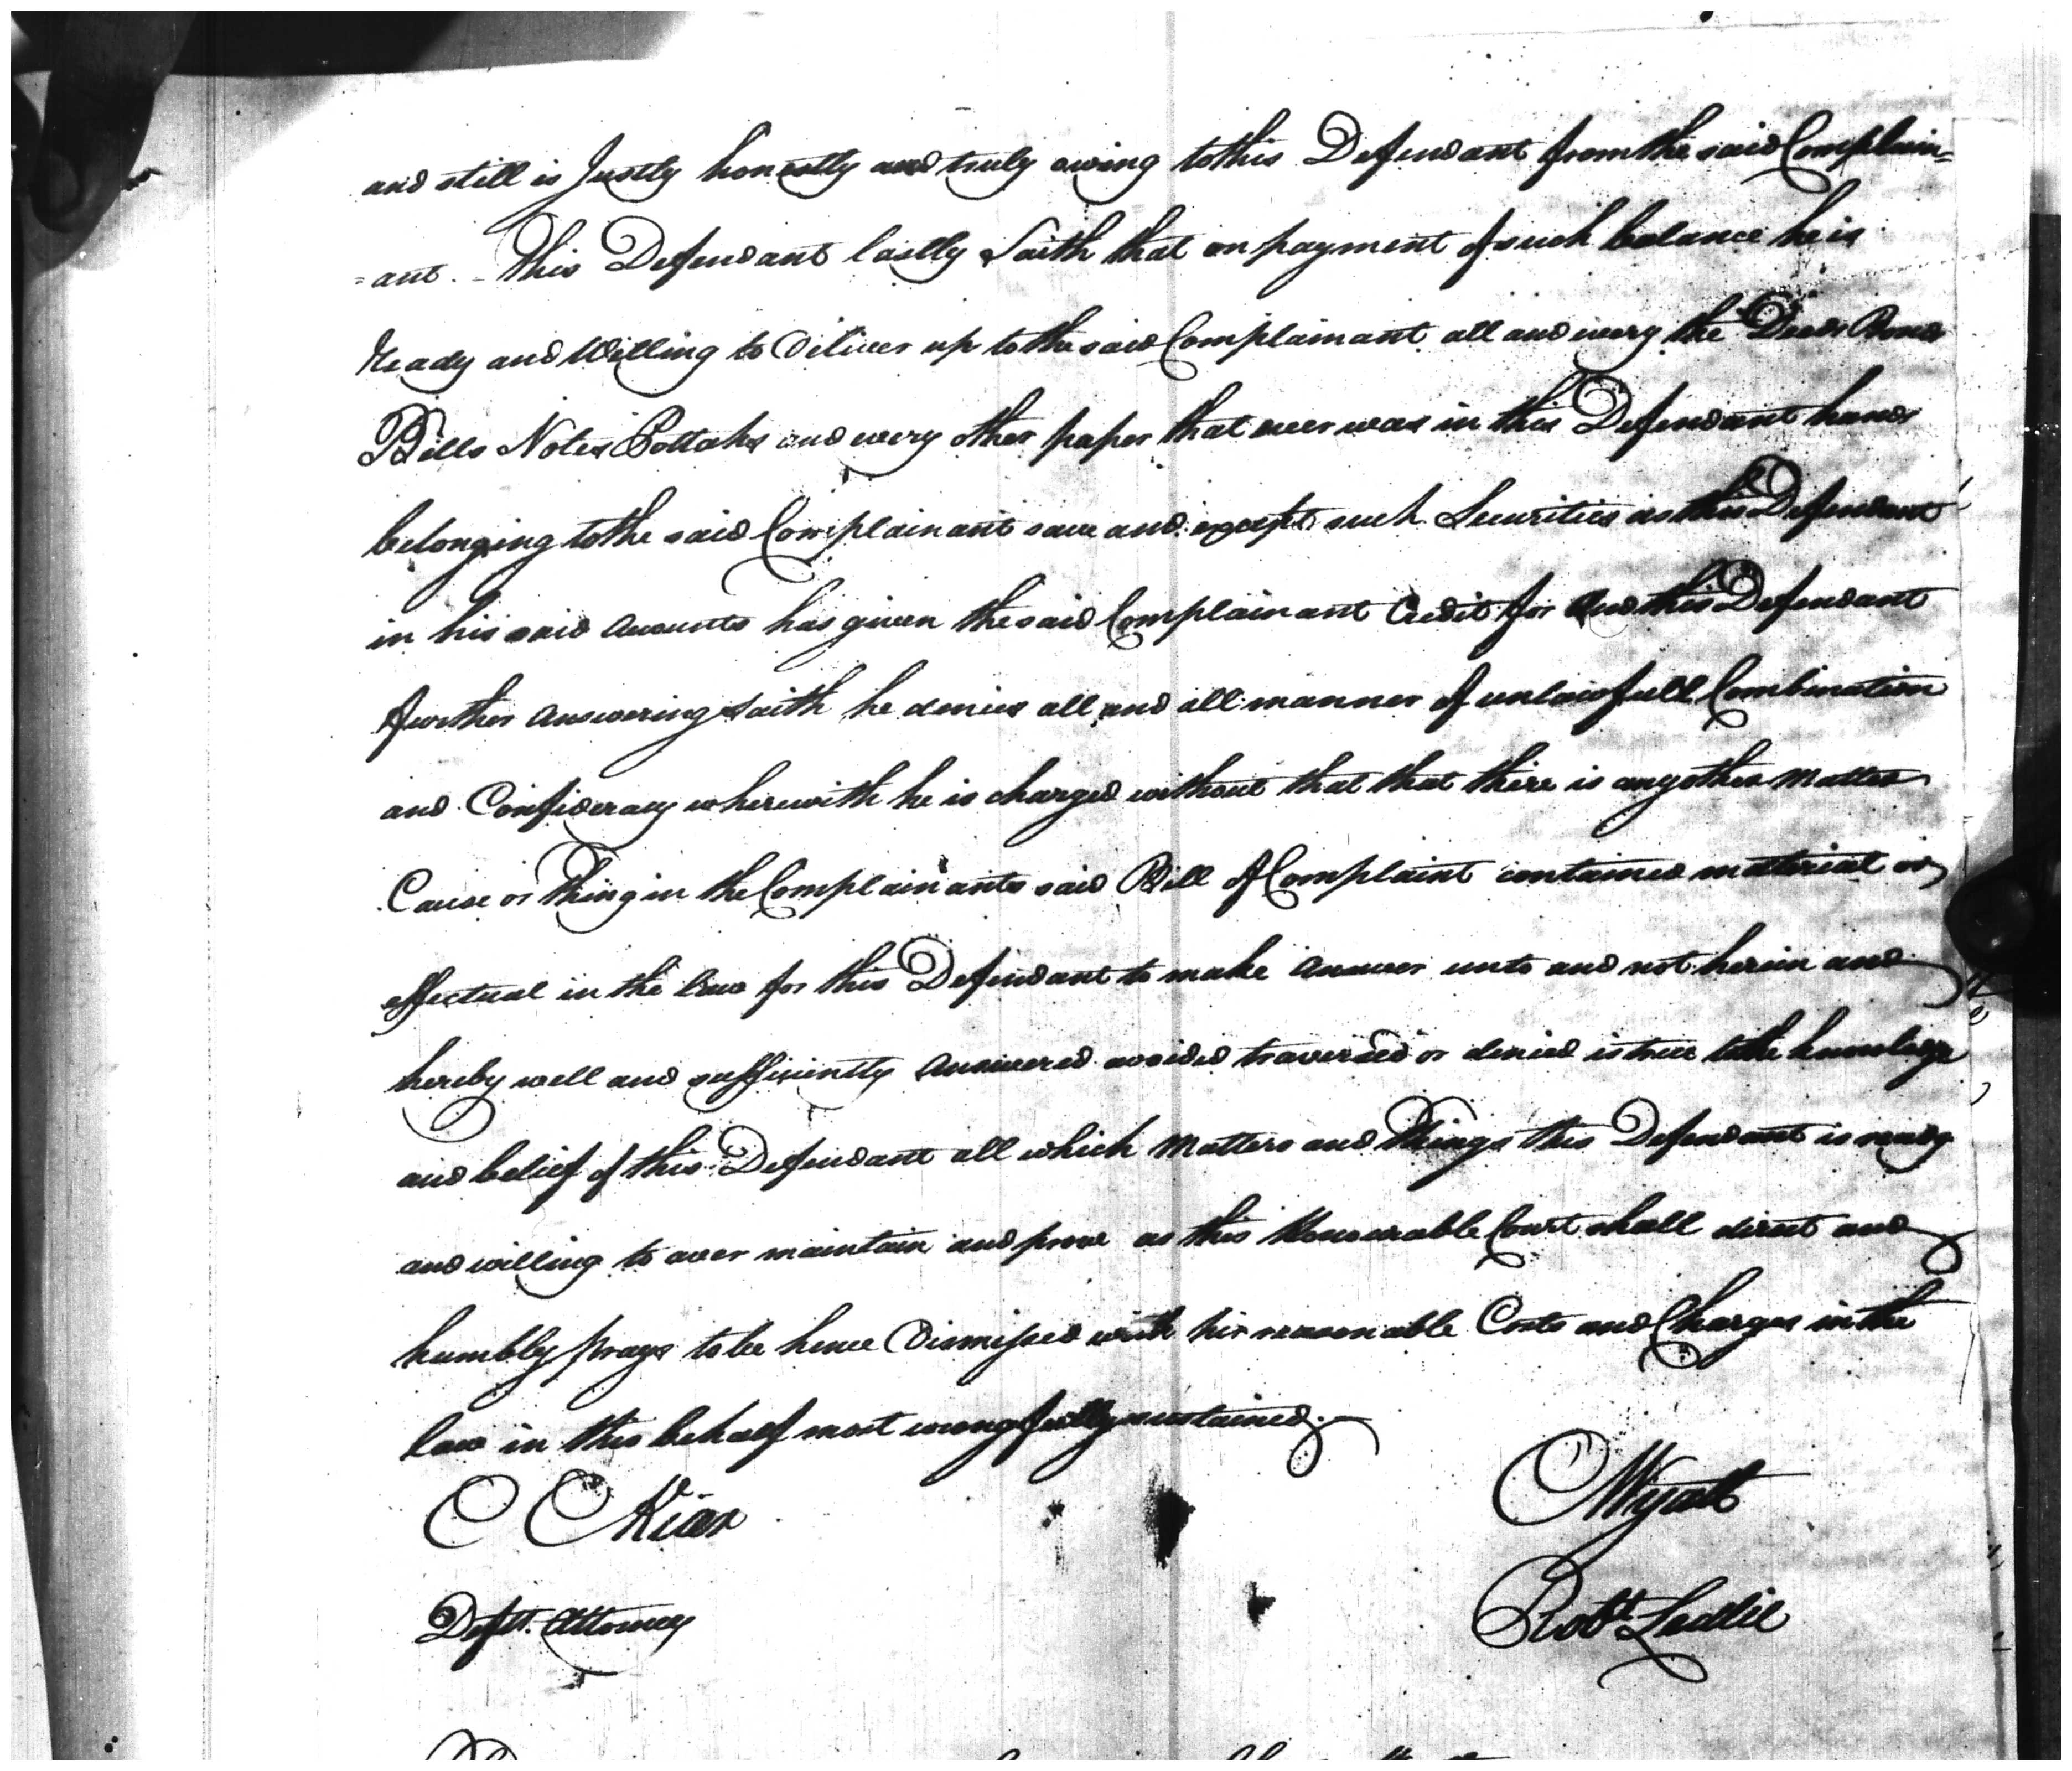 and still is Justly honestly and truly owing to this Defendant from the said Complain=
=ant. - This Defendant lastly Saith that on payment of such balance he is
Ready and Willing to Deliver up to the said Complainant all and every the Deeds Bonds
Bills Notes Pottahs and every other paper that ever was in this Defendant hands
belonging to the said Complainant save and except such Securities as this Defendant
in his said Accounts has given the said Complainant Credit for And this Defendant
further Answering Saith he denies all and all manner of unlawfull Combination
and Confideracy wherewith he is charged without that that there is any other Matter
Cause or Thing in the Complainants said Bill of Complaint contained material or
effectual in the Law for this Defendant to make Answer unto and not herein and
hereby well and sufficiently Answered avoided traversed or denied is true to the knowledge
and belief of this Defendant all which Matters and Things this Defendant is ready
and willing to aver maintain and prove as this Honourable Court shall direct and
humbly prays to be hence Dismissed with his reasonable Costs and Charges in the
law in this behalf most wrongfully sustained.
Defts. Attorney
Robt. Ledlie